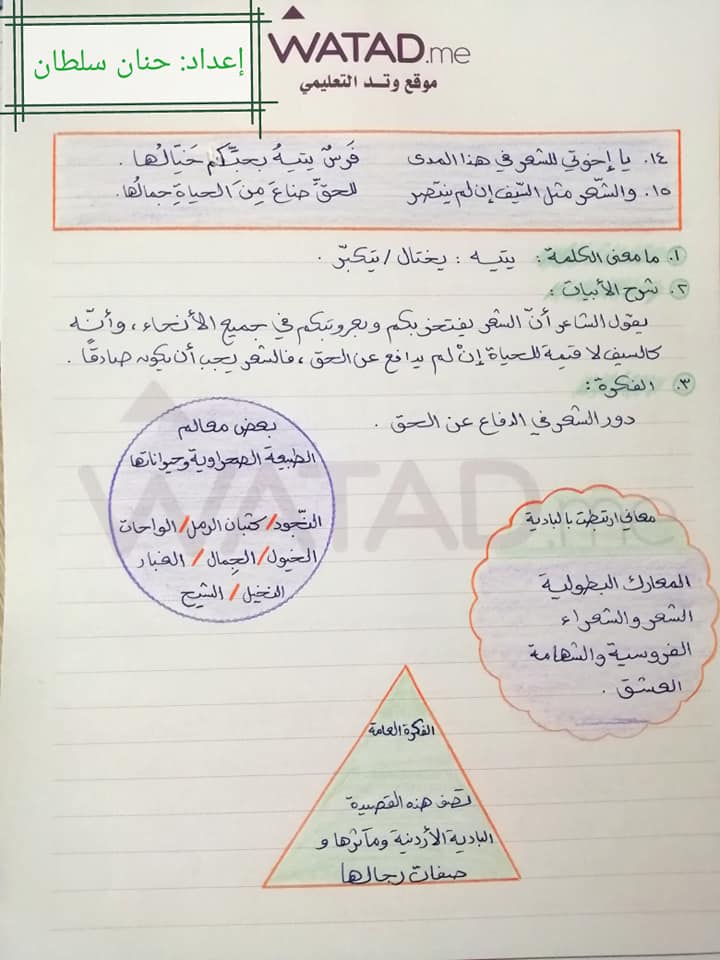 إعداد: حنان سلطان
WATAD.me
موقع وتد التعليمي
١٤. يا إخوتي للشعر في هذا المدى فَرَسٌ يتيهُ بحبّكم خيّالُها .
١٥. والشّعر مثل السّيف إن لم ينتصر للحقِّ ضاعَ مِنَ الحياةِ جمالُها.
١. ما معنى الكلمة : يتيه : يختال / يتكبّر .
٢. شرح الأبيات :
يقول الشاعر أنّ الشعر يفتخر بكم وبعروبتكم في جميع الأنحاء ، وأنّه
كالسيف لا قيمة للحياة إنْ لم يدافع عن الحق ، فالشعر يجب أن يكون صادقًا .
٣. الفكرة :
دور الشعر في الدفاع عن الحق .
بعض معالم
الطبيعة الصحراوية وحيواناتها
النّجود / كثبان الرمل / الواحات
الخيول / الجِمال / الغبار
النخيل / الشيح
معاني ارتبطت بالبادية
المعارك البطولية
الشعر والشعراء
الفروسية والشهامة
العشق .
الفكرة العامة
تصف هذه القصيدة
البادية الأردنية ومآثرها و
صفات رجالها
WATAD.me